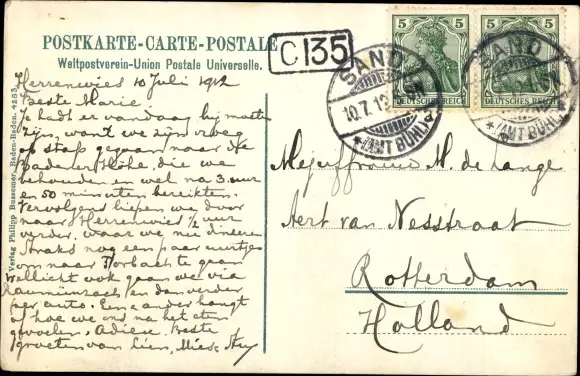 POSTKARTE-CARTE-POSTALE
Weltpostverein-Union Postale Universelle.
C 135
5 5
5 5
DEUTSCHES REICH
DEUTSCHES REICH
SAND
10.7.12
* (AMT BÜHL) *
SAND
* (AMT BÜHL) *
Verlag Philipp Bussemer, Baden-Baden. 4283
Herrenwies 10 Juli 1912
Beste Marie
Je hadt er vandaag bij moeten
zijn, want we zijn vroeg
op stap gegaan naar de
Badener Höhe, die we
en wel na 3 uur
en 50 minuten bereikten.
Vervolgens liepen we door
naar Herrenwies 1/2 uur
verder, waar we nu dineren
straks nog een paar uurtjes
om naar Forbach te gaan
wellicht ook gaan we via
Raumünzach en dan verder
per auto. Een & ander hangt
af hoe we ons na het eten
gevoelen. Adieu. Beste
groeten van Lien, Mies &
Mejuffrouw M. de Lange
Aert van Nesstraat
Rotterdam
Holland